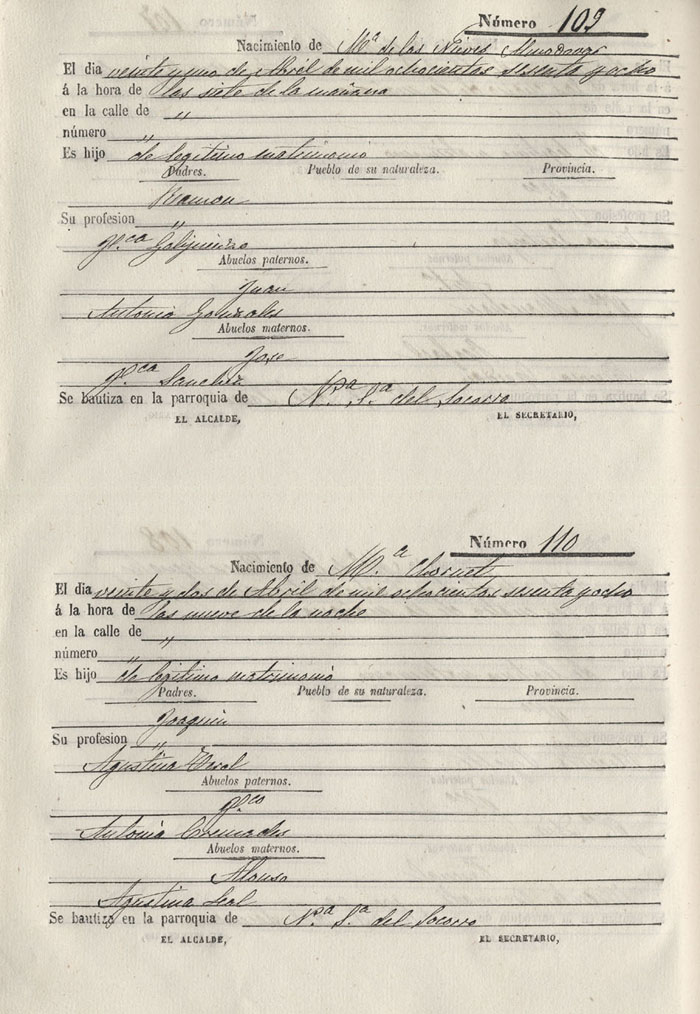 Número 109
Nacimiento de Mª de las Nieves Almodovar
El dia veinte y uno de Abril de mil ochocientos sesenta y ocho
á la hora de las siete de la mañana
en la calle de "
número "
Es hijo de legitimo matrimonio
Padres. Pueblo de su naturaleza. Provincia.
Ramon
Su profesion "
Fca
Abuelos paternos.
Juan
Antonia Gonzales
Abuelos maternos.
Jose
Fca Sanchez
Se bautiza en la parroquia de Nª Sª del Socorro
EL ALCALDE, EL SECRETARIO,
Número 110
Nacimiento de Mª Chornet
El dia veinte y dos de Abril de mil ochocientos sesenta y ocho
á la hora de las nueve de la noche
en la calle de "
número "
Es hijo de legitimo matrimonio
Padres. Pueblo de su naturaleza. Provincia.
Joaquin
Su profesion "
Agustina
Abuelos paternos.
Fco
Antonia Cremades
Abuelos maternos.
Alonso
Agustina Leal
Se bautiza en la parroquia de Nª Sª del Socorro
EL ALCALDE, EL SECRETARIO,